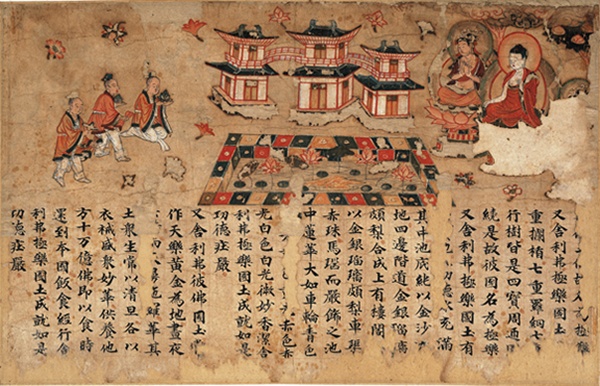 極樂
又舍利弗極樂國土
重欄楯七重羅網七
行樹皆是四寶周匝
繞是故彼國名為極樂
又舍利弗極樂國土有
充滿
其中池底純以金沙
地四邊階道金銀瑠璃
頗梨合成上有樓閣
以金銀瑠璃頗梨車璖
赤珠馬瑙而嚴飾之池
中蓮華大如車輪青色
赤色赤
光白色白光微妙香潔舍
利弗極樂國土成就如是
功德莊嚴
又舍利弗彼佛國土
作天樂黃金為地晝夜
羅華其
土眾生常以清旦各以
衣裓盛眾妙華供養他
方十萬億佛即以食時
還到本國飯食經行舍
利弗極樂國土成就如是
功德莊嚴